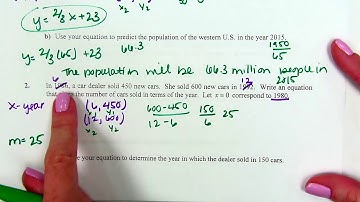 y = 2/3 x + 23
x₂ y₂
b) Use your equation to predict the population of the western U.S. in the year 2015.
y = 2/3 (65) + 23 66.3
1950
65
2015
The population will be 66.3 million people in
2. In a car dealer sold 450 new cars. She sold 600 new cars in Write an equation
the number of cars sold in terms of the year. Let x = 0 correspond to 1980.
6
12
x-year
(6, 450)
x₁ y₁
(12, 600)
x₂ y₂
600 - 450
12 - 6
150
6
25
m = 25
use your equation to determine the year in which the dealer sold in 150 cars.